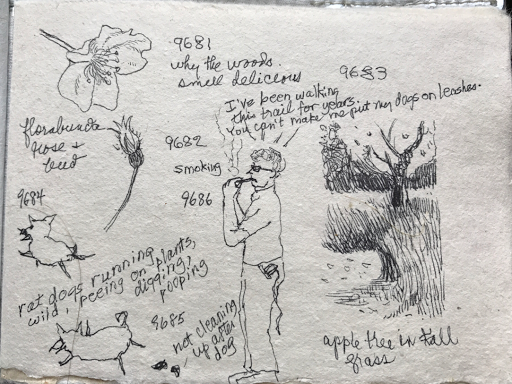 9681
why the woods
smell delicious
9683
I've been walking
this trail for years.
You can't make me put my dogs on leashes.
florabunda
rose +
bud
9682
smoking
9686
9684
rat dogs running
wild, peeing on plants,
digging,
pooping
9685
not cleaning
up after
dog
apple tree in tall
grass